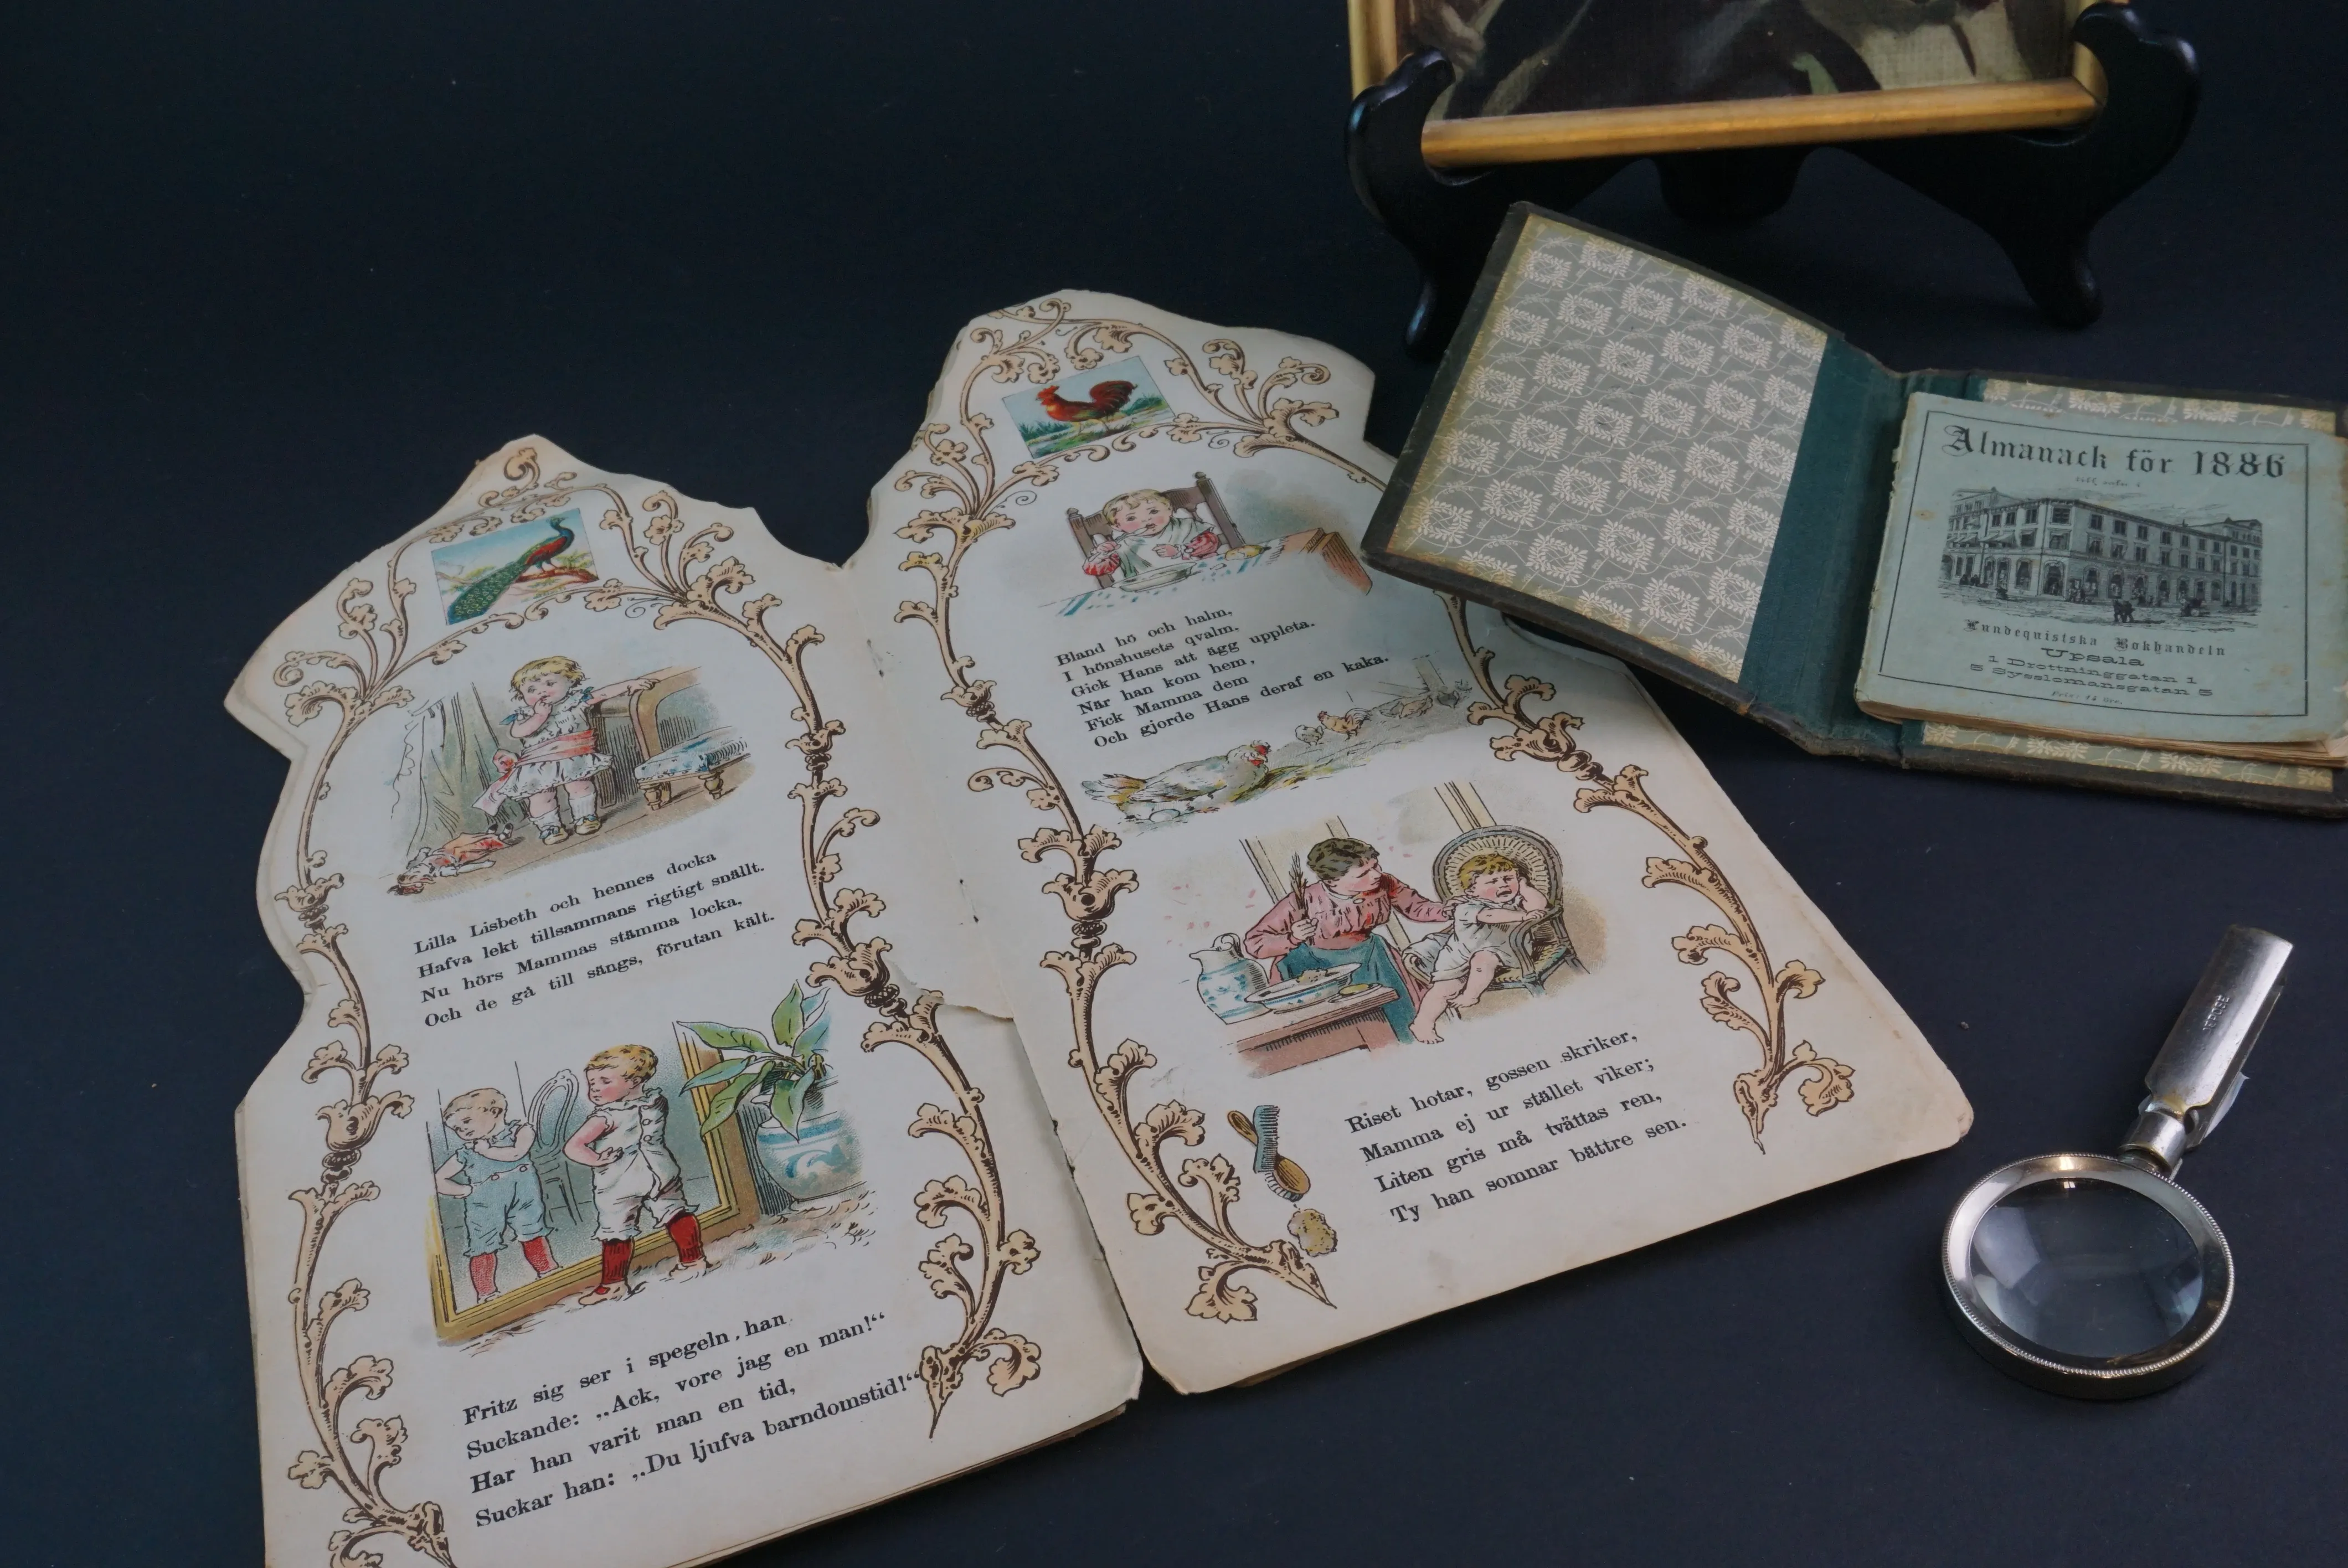 Lilla Lisbeth och hennes docka
Hafva lekt tillsammans rigtigt snällt.
Nu hörs Mammas stämma locka,
Och de gå till sängs, förutan kält.
Fritz sig ser i spegeln, han
Suckande: „Ack, vore jag en man!“
Har han varit man en tid,
Suckar han: „Du ljufva barndomstid!“
Bland hö och halm,
I hönshusets qvalm,
Gick Hans att ägg uppleta.
När han kom hem,
Fick Mamma dem
Och gjorde Hans deraf en kaka.
Riset hotar, gossen skriker,
Mamma ej ur stället viker;
Liten gris må tvättas ren,
Ty han somnar bättre sen.
Almanack för 1886
Lundequistska Bokhandeln
Upsala
1 Drottninggatan 1
5 Sysslomansgatan 5